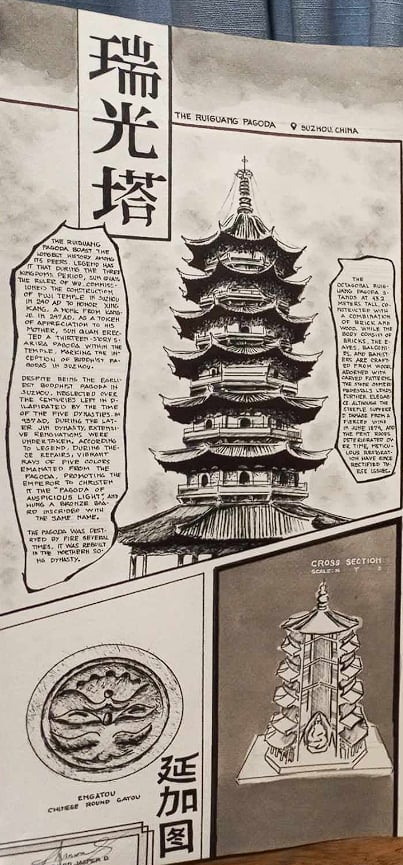 瑞光塔
THE RUIGUANG PAGODA
SUZHOU, CHINA
THE RUIGUANG
PAGODA BOAST THE
LONGEST HISTORY AMONG
ITS PEERS. LEGEND HAS
IT THAT DURING THE THREE
KINGDOMS PERIOD, SUN QUAN,
THE RULER OF WU, COMMISS-
IONED THE CONSTRUCTION
OF PUJI TEMPLE IN SUZHOU
IN 240 AD TO HONOR XING
KANG, A MONK FROM KANG-
JE. IN 247 AD, AS A TOKEN
OF APPRECIATION TO HIS
MOTHER, SUN QUAN EREC-
TED A THIRTEEN-STORY S-
ARIRA PAGODA WITHIN THE
TEMPLE, MARKING THE IN-
CEPTION OF BUDDHIST PA-
GODAS IN SUZHOU.
DESPITE BEING THE EARLI-
EST BUDDHIST PAGODA IN
SUZHOU, NEGLECTED OVER
THE CENTURIES LEFT IN D-
ILAPIDATED BY THE TIME
OF THE FIVE DYNASTIES. IN
937 AD, DURING THE LAT-
ER JIN DYNASTY, EXTENSI-
VE RENOVATIONS WERE
UNDERTAKEN. ACCORDING
TO LEGEND, DURING THE-
SE REPAIRS, VIBRANT
RAYS OF FIVE COLORS
EMANATED FROM THE
PAGODA, PROMOTING THE
EMPEROR TO CHRISTEN
IT THE "PAGODA OF
AUSPICIOUS LIGHT", AND
HUNG A BRONZE BOA-
RD INSCRIBED WITH
THE SAME NAME.
THE PAGODA WAS DEST-
RYED BY FIRE SEVERAL
TIMES. IT WAS REBUILT
IN THE NORTHERN SO-
NG DYNASTY.
THE
OCTAGONAL RUIG-
UANG PAGODA S-
TANDS AT 43.2
METERS TALL, CO-
NSTRUCTED WITH
A COMBINATION
OF BRICK AND
WOOD. WHILE THE
BODY CONSIST OF
BRICKS, THE E-
AVES, BALCONI-
ES, AND BANIST-
ERS ARE CRAFT-
ED FROM WOOD,
ADORNED WITH
CARVED PATTERNS.
THE STONE
PEDESTALS LENDS
FURTHER ELEGAN-
CE. ALTHOUGH THE
STEEPLE SUFFERE-
D DAMAGE FROM A
FIERCED WIND
IN JUNE 1879, AND
THE ROOFS
DETERIORATED OV-
ER TIME, METICU-
LOUS RESTORAT-
ION HAVE SINCE
RECTIFIED TH-
ESE ISSUES.
CROSS SECTION
SCALE: N T S
EMGATOU
CHINESE ROUND GATOU
延加图